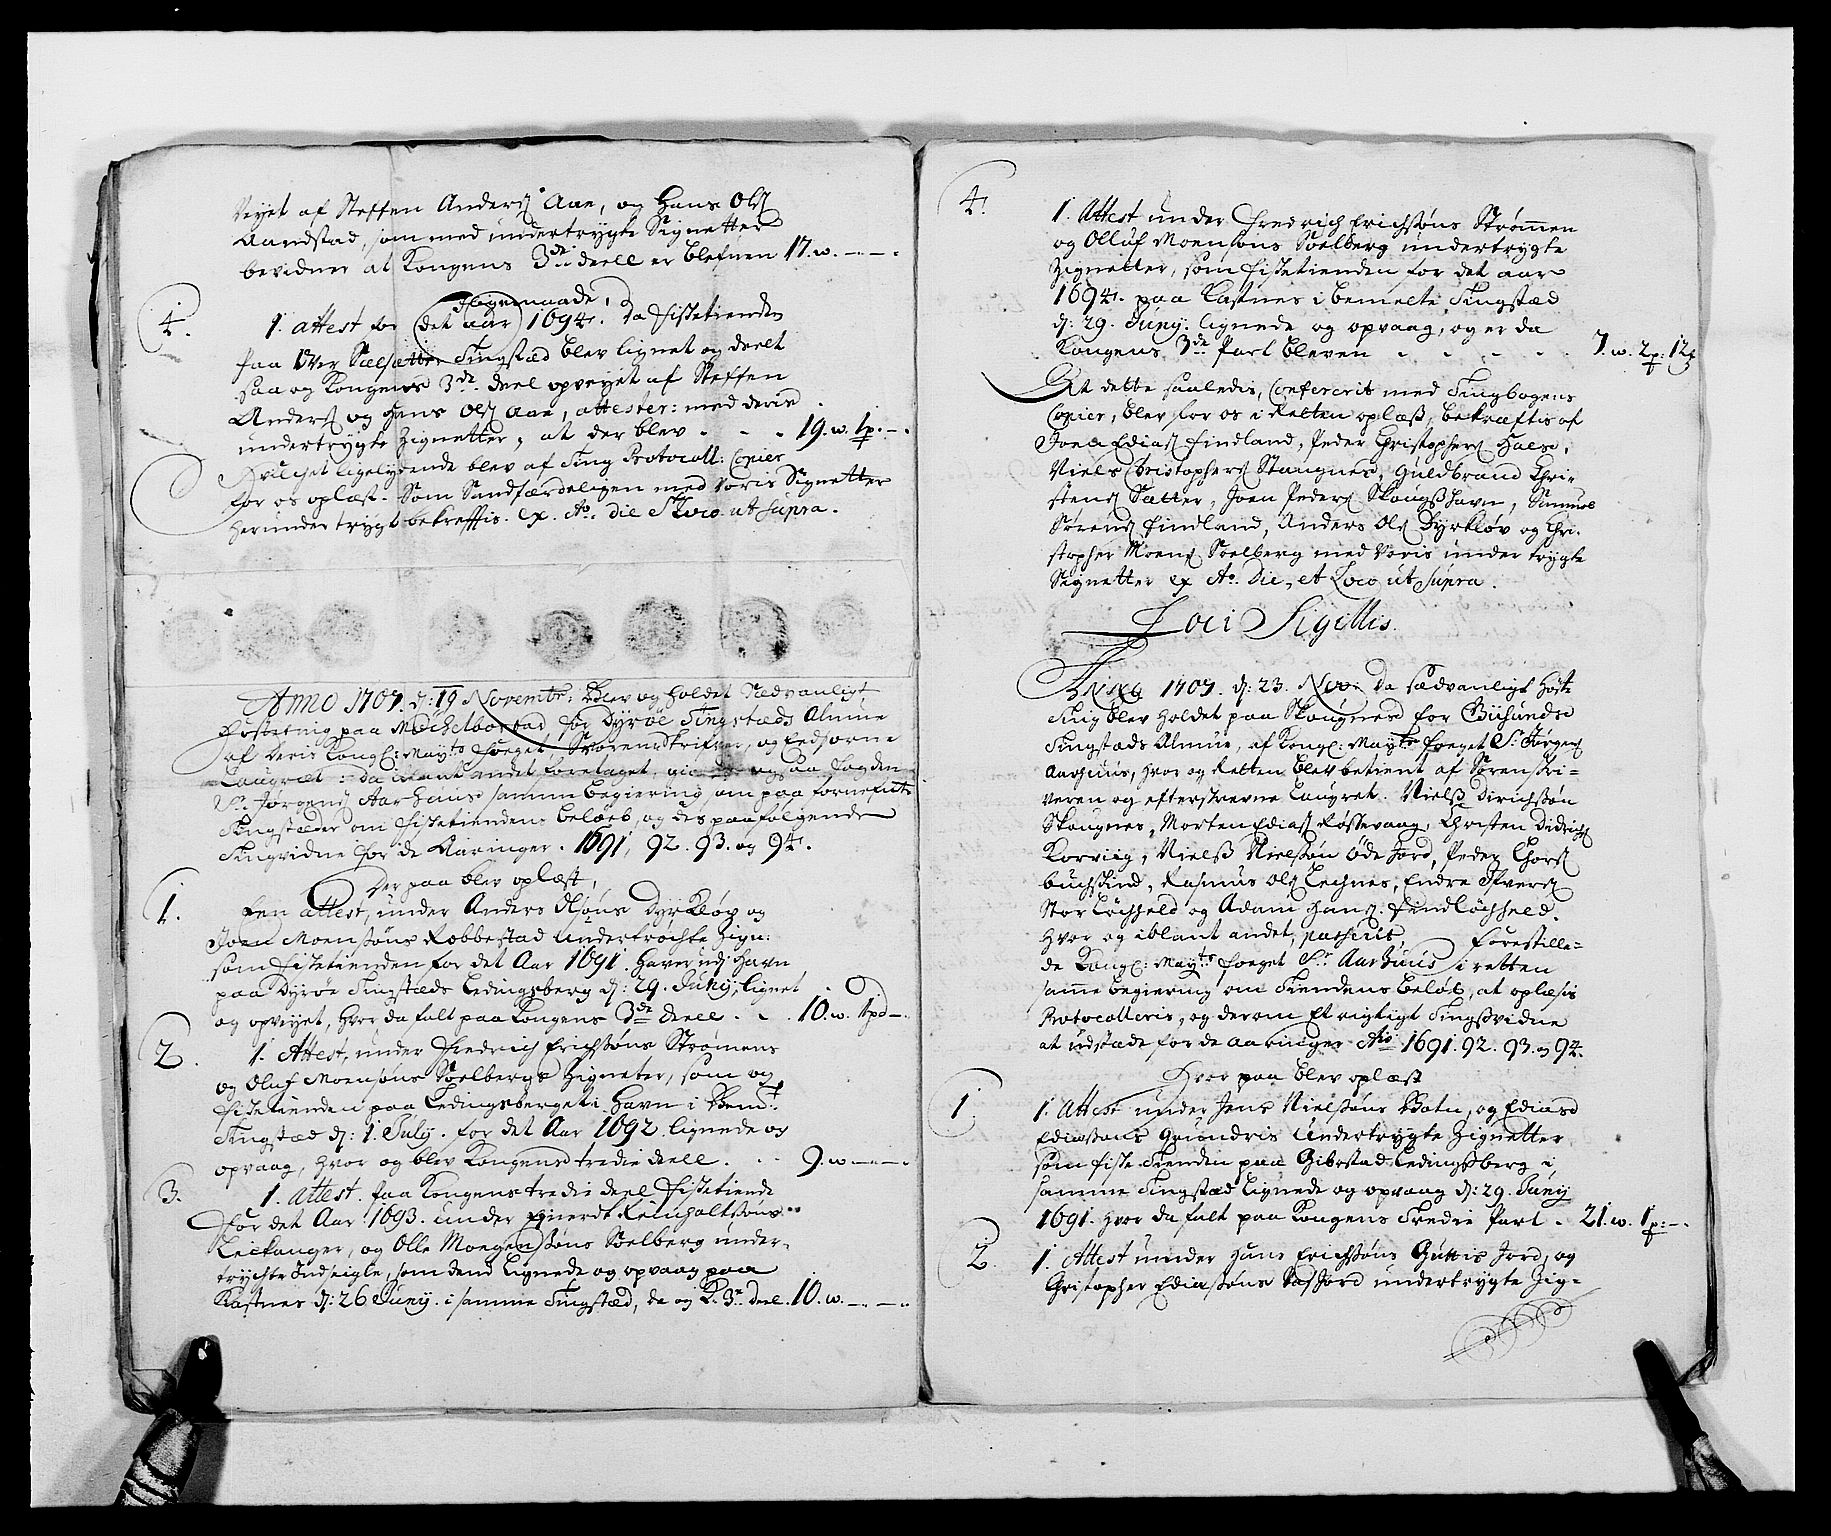 Veyet af Steffen Anders Aae, og Hans Ols
Aandstad, som med undertrygte Signetter
bevidner at Kongens 3de deell er blefuen 17. w. — . — .
Ligemaade,
4. 1. attest for det aar 1694. da fisketienden
paa Øver Sælsætter Tingstæd blev lignet og deelt
saa og Kongens 3de deel opveyet af Steffen
Anders og Hans Ols Aae, attester: med deris
undertrygte Zignetter, at der blev . . . 19. w. 1 p. — .
Hvilchet ligelydende blev af Ting Protocoll: Copier
for os oplæst. Som Sandfærdeligen med voris Signetter
herunder trygt bekreffis. ex. Ao. die & loco ut supra.
Anno 1707. d: 19 Novembr: blev og holdet Sædvanligt
Høsteting paa Mochelborstad for Dyrøe Tingstæds Almue
af deris Kongl: Mayts foeget, Sorenskrifver, og Eedsorne
Laugræt: da iblant andet foretaget, og paa fogden
Sr. Jørgen Aarhuus samme begiering som paa fornefnte
Tingstæder om fisketiendens beløeb, og des paafølgende
Tingvidne for de Aaringer. 1691, 92. 93. og 94.
Der paa blev oplæst,
1. Een attest, under Anders Olsøns Dyrkløv og
Joen Moensøns Robbestad undertrøchte Zign:
som fisketienden for det Aar 1691. haver udj Havn
paa Dyrøe Tingstæds Ledingsberg d: 29. Juny, lignet
og opveyet, hvor da falt paa Kongens 3de deell . . 10. w. 1 pd — .
2. 1. Attest, under Fredrich Erichsøns Strømens
og Oluf Moensøns Soelbergs Zigneter, som og
fisketienden paa Ledingsberget i Havn i Bemt:
Tingstæd d: 1. July. for det Aar 1692. lignede og
opvaag, hvor og blev Kongens tredie deell . . . 9. w — . — .
3. 1. Attest. paa Kongens tredie deel fisketiende
for det Aar 1693. under Reinholtsøns
Leikanger, og Olle Moengensøns Soelberg under-
trychte Indseigle, som dend lignede og opvaag paa
Kastnes d: 26 Juny. i samme Tingstæd, da og K. 3de deel. 10. w. — . — .
4. 1. Attest under Fredrich Erichsøns Strømmen
og Olluf Moensøns Soelberg undertrygte
Zignetter, som fisketienden for det aar
1694. paa Kastnes i bemelte Tingstæd
d: 29. Juny. lignede og opvaag, og er da
Kongens 3de Part bleven . . . . . 7. w. 2 p: 12
At dette saaledis, Confererit med Tingbogens
Copier, blev for os i Retten oplæst, bekræftis af
Jona Ediass Findland, Peder Christophers Hals,
Niels Christophers Stangnes, Guldbrand Chri-
stens Sætter, Joen Peders Skougshavn, Simmel
Sørens Findland, Anders Ols Dyrkløv og Chri-
stopher Moens Soelberg med voris under trygte
Signetter ex Ao. Die, et Loco ut supra.
Loci Sigillis.
Anno 1707. d: 23. Nov: da sædvanligt Høste
Ting blev holdet paa Skougnes for Giisunds
Tingstæds Almue, af Kongl: Mayts foeget Sr. Jørgen
Aarhuus, hvor og Retten blev betient af Sorenskri-
veren og efterskrevne Laugret. Niels Dirichsøn
Skougnes, Morten Ediass Røssevaag, Christen Didrichs
Korviig, Niels Nielsøn Ødejord, Peder Thors
buchskind, Rasmus Ols Lechnes, Endre Ifvers
Stor Løchheld og Adam Hans. Findløchheld.
Hvor og iblant andet, passerit, forestille-
de Kongl: Mayts foeget Sr Aarhuus i retten
samme begiering om Tiendens beløb, at oplæsis
Protocolleris, og derom et rigtigt Tingsvidne
at udstæde for de aaringer Ao 1691. 92. 93. og 94.
Hvor paa blev oplæst
1. 1. Attest under Jens Nielsøns Botn, og Ediasd
Ediasøns Grundris undertrygte Zignetter
som fiske Tienden paa Gibostad Ledingsberg i
samme Tingstæd lignede og opvaag d: 29. Juny
1691. hvor da falt paa Kongens Tredie Part . 21. w. 1 p: — .
2. 1. Attest under Hans Erichsøns Guttis Jord, og
Christopher Ediasøns Sasfjord undertrygte Zig-